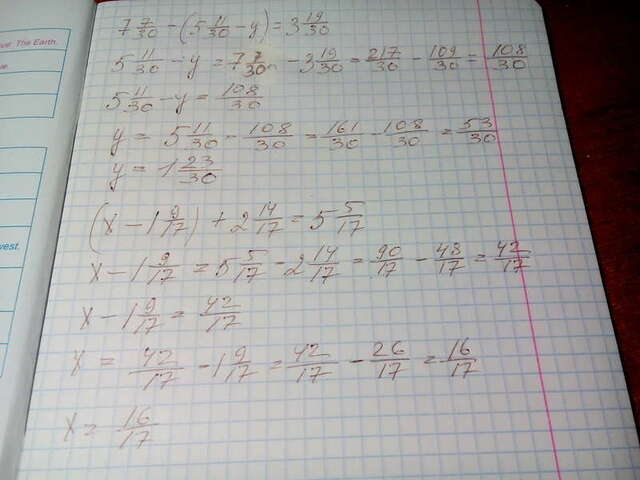 ve The Earth.
7 7/30 - (5 11/30 - y) = 3 19/30
5 11/30 - y = 7 7/30 - 3 19/30 = 217/30 - 109/30 = 108/30
5 11/30 - y = 108/30
y = 5 11/30 - 108/30 = 161/30 - 108/30 = 53/30
y = 1 23/30
(x - 1 9/17) + 2 14/17 = 5 5/17
x - 1 9/17 = 5 5/17 - 2 14/17 = 90/17 - 48/17 = 42/17
x - 1 9/17 = 42/17
x = 42/17 - 1 9/17 = 42/17 - 26/17 = 16/17
x = 16/17
west.